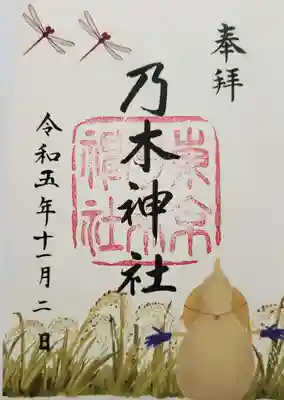 奉拝
乃木神社
令和五年十一月二日